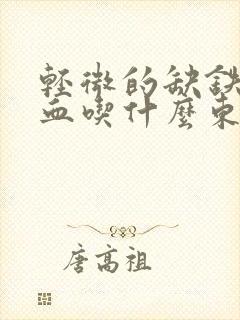 輕微的缺鐵
血喫什麼東
唐高祖